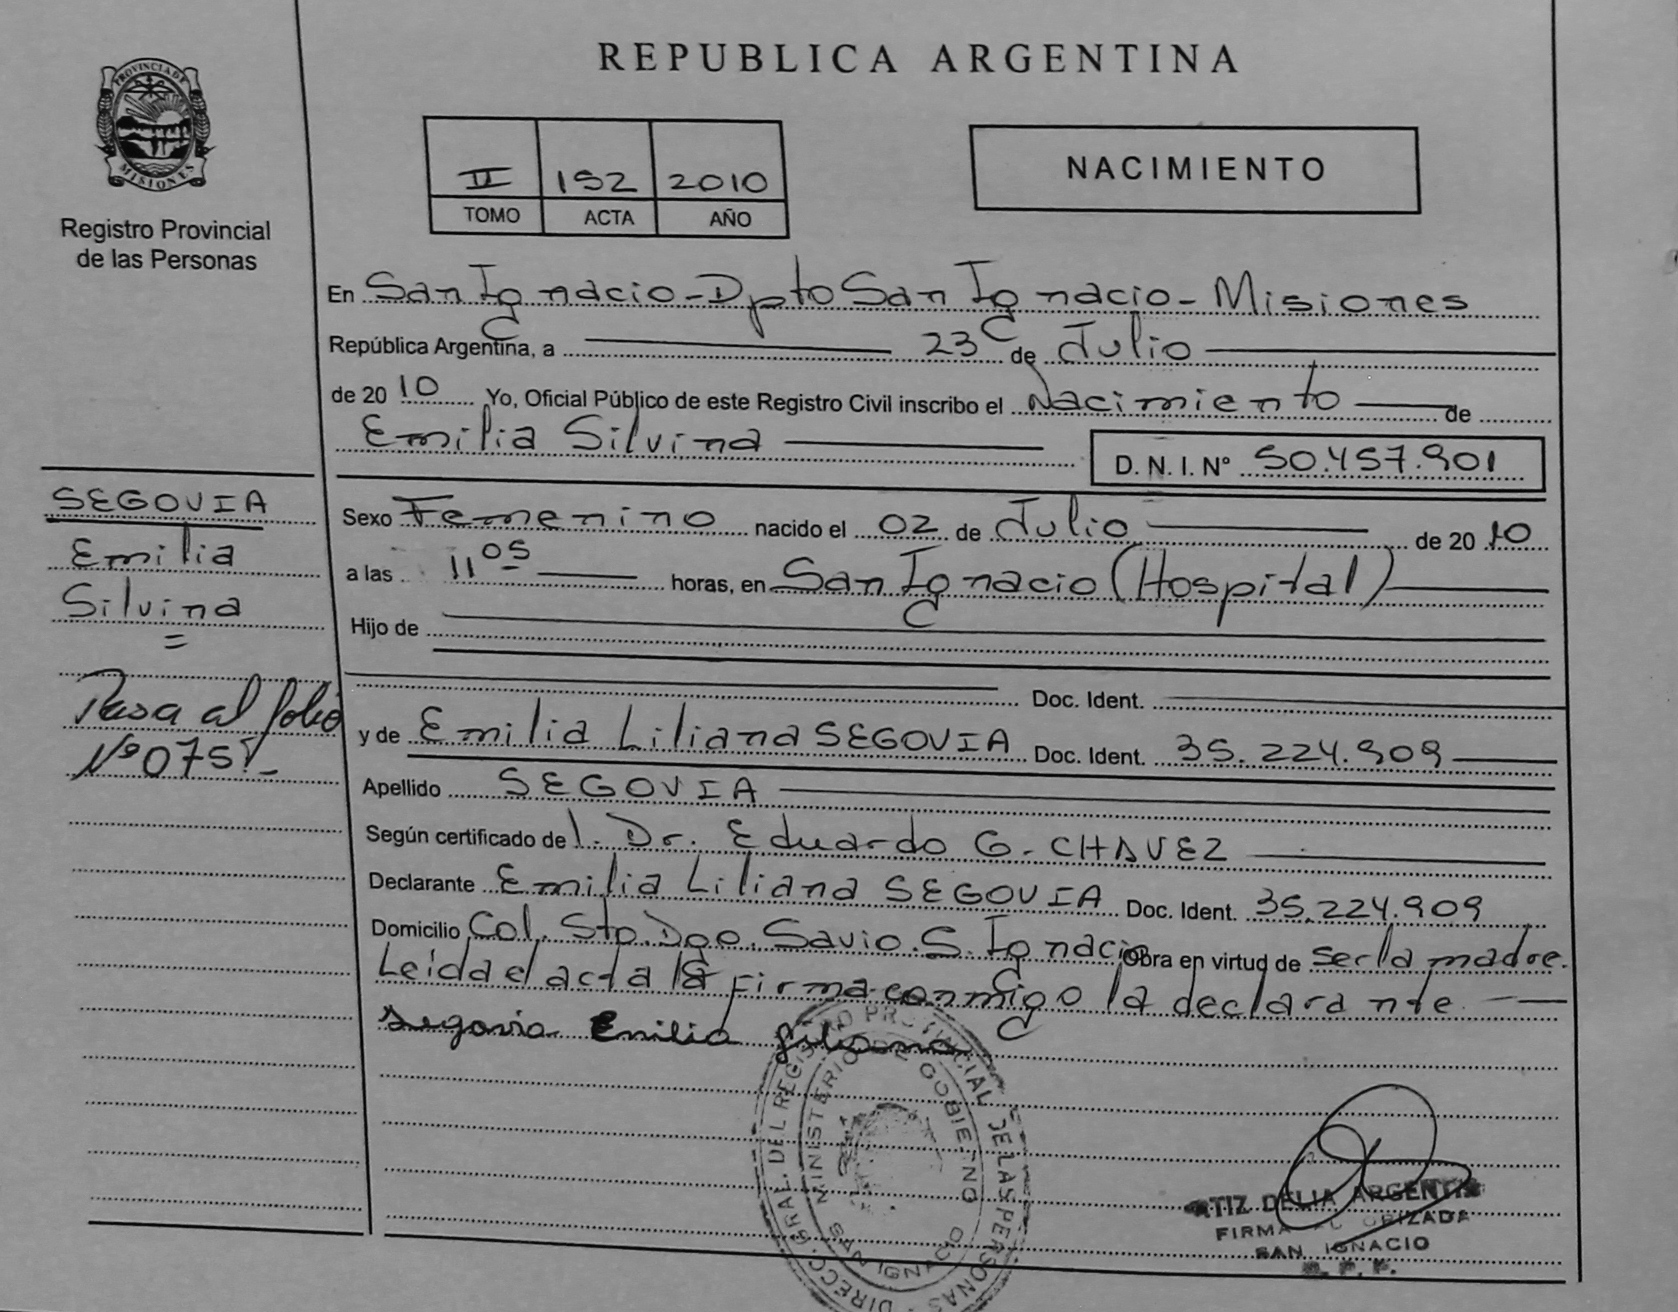 REPUBLICA ARGENTINA
PROVINCIA DE
MISIONES
Registro Provincial
de las Personas
II 152 2010
TOMO ACTA AÑO
NACIMIENTO
En San Ignacio - Dpto San Ignacio - Misiones
República Argentina, a 23 de Julio
de 20 10 Yo, Oficial Público de este Registro Civil inscribo el Nacimiento de
Emilia Silvina
D. N. I. Nº 50.457.901
SEGOVIA
Emilia
Silvina
Pasa al folio
Nº 075
Sexo Femenino nacido el 02 de Julio de 20 10
a las 11 05 horas, en San Ignacio (Hospital)
Hijo de
Doc. Ident.
y de Emilia Liliana SEGOVIA Doc. Ident. 35.224.909
Apellido SEGOVIA
Según certificado de l. Dr. Eduardo G. CHAVEZ
Declarante Emilia Liliana SEGOVIA Doc. Ident. 35.224.909
Domicilio Col. Sto. Dgo. Savio. S. Ignacio Obra en virtud de ser la madre.
Leida el acta la firma conmigo la declarante
Segovia Emilia Liliana
DIRECC. GRAL. DEL REGISTRO PROVINCIAL DE LAS PERSONAS
MINISTERIO DE GOBIERNO
SAN IGNACIO
DELIA ARGENTINA
FIRMA AUTORIZADA
SAN IGNACIO
R. P. P.